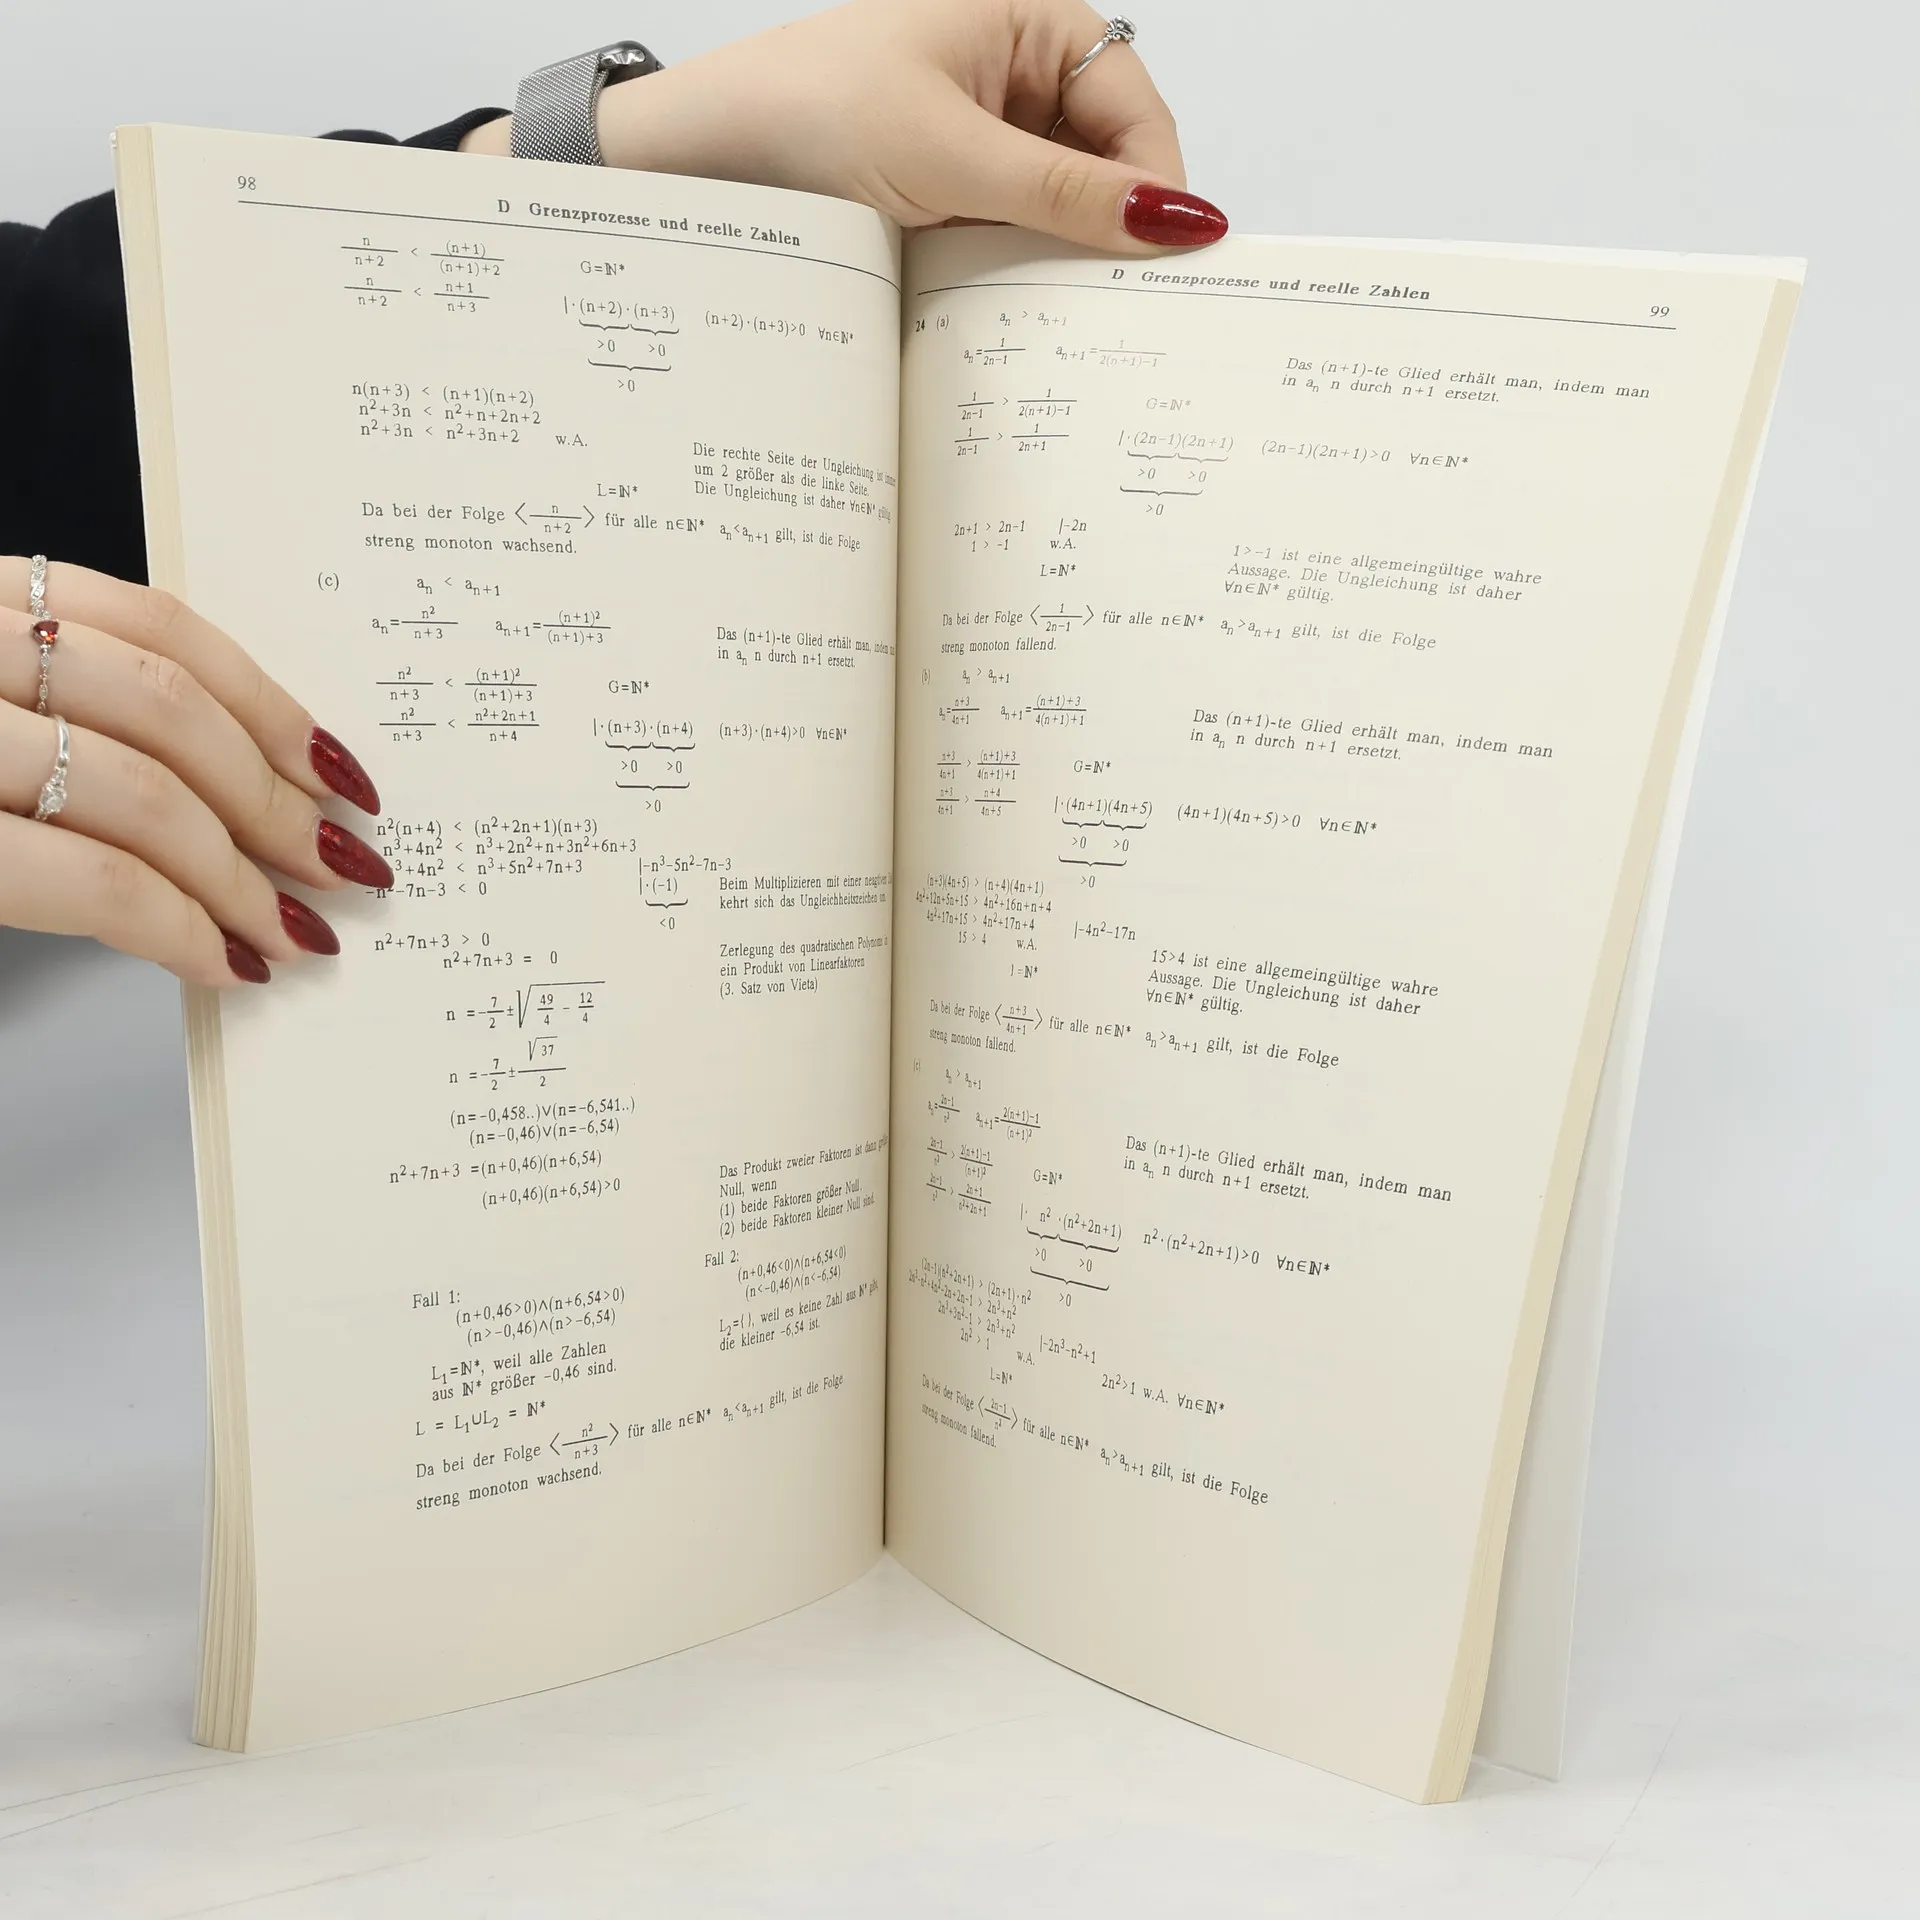 98
D Grenzprozesse und reelle Zahlen
n/(n+2) < (n+1)/((n+1)+2) G=ℕ*
n/(n+2) < (n+1)/(n+3) |·(n+2)·(n+3) (n+2)·(n+3)>0 ∀n∈ℕ*
>0 >0
>0
n(n+3) < (n+1)(n+2)
n²+3n < n²+n+2n+2
n²+3n < n²+3n+2 w.A.
Die rechte Seite der Ungleichung ist
um 2 größer als die linke Seite.
L=ℕ* Die Ungleichung ist daher ∀n∈ℕ* gültig
Da bei der Folge ⟨n/(n+2)⟩ für alle n∈ℕ* aₙ<aₙ₊₁ gilt, ist die Folge
streng monoton wachsend.
(c) aₙ < aₙ₊₁
aₙ=n²/(n+3) aₙ₊₁=(n+1)²/((n+1)+3)
Das (n+1)-te Glied erhält man, indem
in aₙ n durch n+1 ersetzt.
n²/(n+3) < (n+1)²/((n+1)+3) G=ℕ*
n²/(n+3) < (n²+2n+1)/(n+4) |·(n+3)·(n+4) (n+3)·(n+4)>0 ∀n∈ℕ*
>0 >0
>0
n²(n+4) < (n²+2n+1)(n+3)
n³+4n² < n³+2n²+n+3n²+6n+3
³+4n² < n³+5n²+7n+3 |-n³-5n²-7n-3
-n²-7n-3 < 0 |·(-1) Beim Multiplizieren mit einer
kehrt sich das Ungleichheitszeichen um
<0
n²+7n+3 > 0
n²+7n+3 = 0
Zerlegung des quadratischen Polynoms
ein Produkt von Linearfaktoren
(3. Satz von Vieta)
n =-7/2±√(49/4 - 12/4)
n =-7/2±√37/2
(n=-0,458..)∨(n=-6,541..)
(n=-0,46)∨(n=-6,54)
n²+7n+3 =(n+0,46)(n+6,54)
(n+0,46)(n+6,54)>0
Das Produkt zweier Faktoren ist dann
Null, wenn
(1) beide Faktoren größer Null.
(2) beide Faktoren kleiner Null sind.
Fall 1:
(n+0,46>0)∧(n+6,54>0)
(n>-0,46)∧(n>-6,54)
L₁=ℕ*, weil alle Zahlen
aus ℕ* größer -0,46 sind.
Fall 2:
(n+0,46<0)∧(n+6,54<0)
(n<-0,46)∧(n<-6,54)
L₂={ }, weil es keine Zahl aus ℕ* gibt,
die kleiner -6,54 ist.
L = L₁∪L₂ = ℕ*
Da bei der Folge ⟨n²/(n+3)⟩ für alle n∈ℕ* aₙ<aₙ₊₁ gilt, ist die Folge
streng monoton wachsend.
D Grenzprozesse und reelle Zahlen
99
24 (a) aₙ > aₙ₊₁
aₙ=1/(2n-1) aₙ₊₁=1/(2(n+1)-1)
Das (n+1)-te Glied erhält man, indem man
in aₙ n durch n+1 ersetzt.
1/(2n-1) > 1/(2(n+1)-1) G=ℕ*
1/(2n-1) > 1/(2n+1) |·(2n-1)(2n+1) (2n-1)(2n+1)>0 ∀n∈ℕ*
>0 >0
>0
2n+1 > 2n-1 |-2n
1 > -1 w.A.
L=ℕ*
1>-1 ist eine allgemeingültige wahre
Aussage. Die Ungleichung ist daher
∀n∈ℕ* gültig.
Da bei der Folge ⟨1/(2n-1)⟩ für alle n∈ℕ* aₙ>aₙ₊₁ gilt, ist die Folge
streng monoton fallend.
(b) aₙ > aₙ₊₁
aₙ=(n+3)/(4n+1) aₙ₊₁=((n+1)+3)/(4(n+1)+1)
Das (n+1)-te Glied erhält man, indem man
in aₙ n durch n+1 ersetzt.
(n+3)/(4n+1) > ((n+1)+3)/(4(n+1)+1) G=ℕ*
(n+3)/(4n+1) > (n+4)/(4n+5) |·(4n+1)(4n+5) (4n+1)(4n+5)>0 ∀n∈ℕ*
>0 >0
>0
(n+3)(4n+5) > (n+4)(4n+1)
4n²+12n+5n+15 > 4n²+16n+n+4
4n²+17n+15 > 4n²+17n+4 |-4n²-17n
15 > 4 w.A.
L=ℕ*
15>4 ist eine allgemeingültige wahre
Aussage. Die Ungleichung ist daher
∀n∈ℕ* gültig.
Da bei der Folge ⟨(n+3)/(4n+1)⟩ für alle n∈ℕ* aₙ>aₙ₊₁ gilt, ist die Folge
streng monoton fallend.
(c) aₙ > aₙ₊₁
aₙ=(2n-1)/n² aₙ₊₁=(2(n+1)-1)/(n+1)²
Das (n+1)-te Glied erhält man, indem man
in aₙ n durch n+1 ersetzt.
(2n-1)/n² > (2(n+1)-1)/(n+1)² G=ℕ*
(2n-1)/n² > (2n+1)/(n²+2n+1) |· n² ·(n²+2n+1) n²·(n²+2n+1)>0 ∀n∈ℕ*
>0 >0
>0
(2n-1)(n²+2n+1) > (2n+1)·n²
2n³-n²+4n²-2n+2n-1 > 2n³+n²
2n³+3n²-1 > 2n³+n² |-2n³-n²+1
2n² > 1 w.A. 2n²>1 w.A. ∀n∈ℕ*
L=ℕ*
Da bei der Folge ⟨(2n-1)/n²⟩ für alle n∈ℕ* aₙ>aₙ₊₁ gilt, ist die Folge
streng monoton fallend.